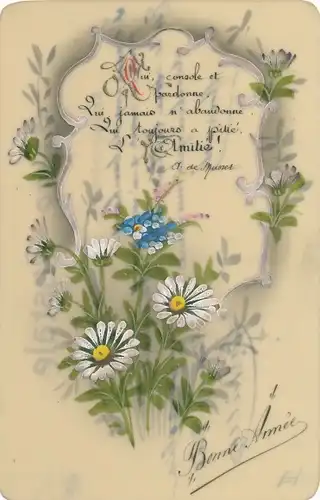 Qui, console et
pardonne,
Qui jamais n'abandonne,
Qui toujours a pitié.
L'Amitié!
A de Musset
Bonne Année